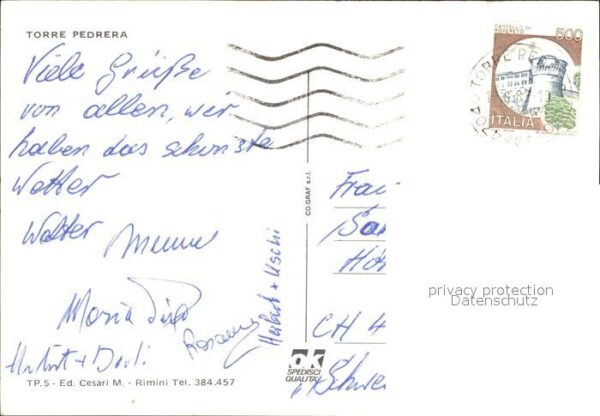 TORRE PEDRERA
Viele Grüße
von allen, wir
haben das schönste
Wetter
Walter
Maria
Rosanna
Herbert + Uschi
Herbert +
TP.5 - Ed. Cesari M. - Rimini Tel. 384.457
CO.GRAF s.r.l.
OK
SPEDISCI
QUALITA'
CASTELLO DI
ROVERETO
500
ITALIA
TORRE PE
Frau
San
CH 4
"Schwe
privacy protection
Datenschutz